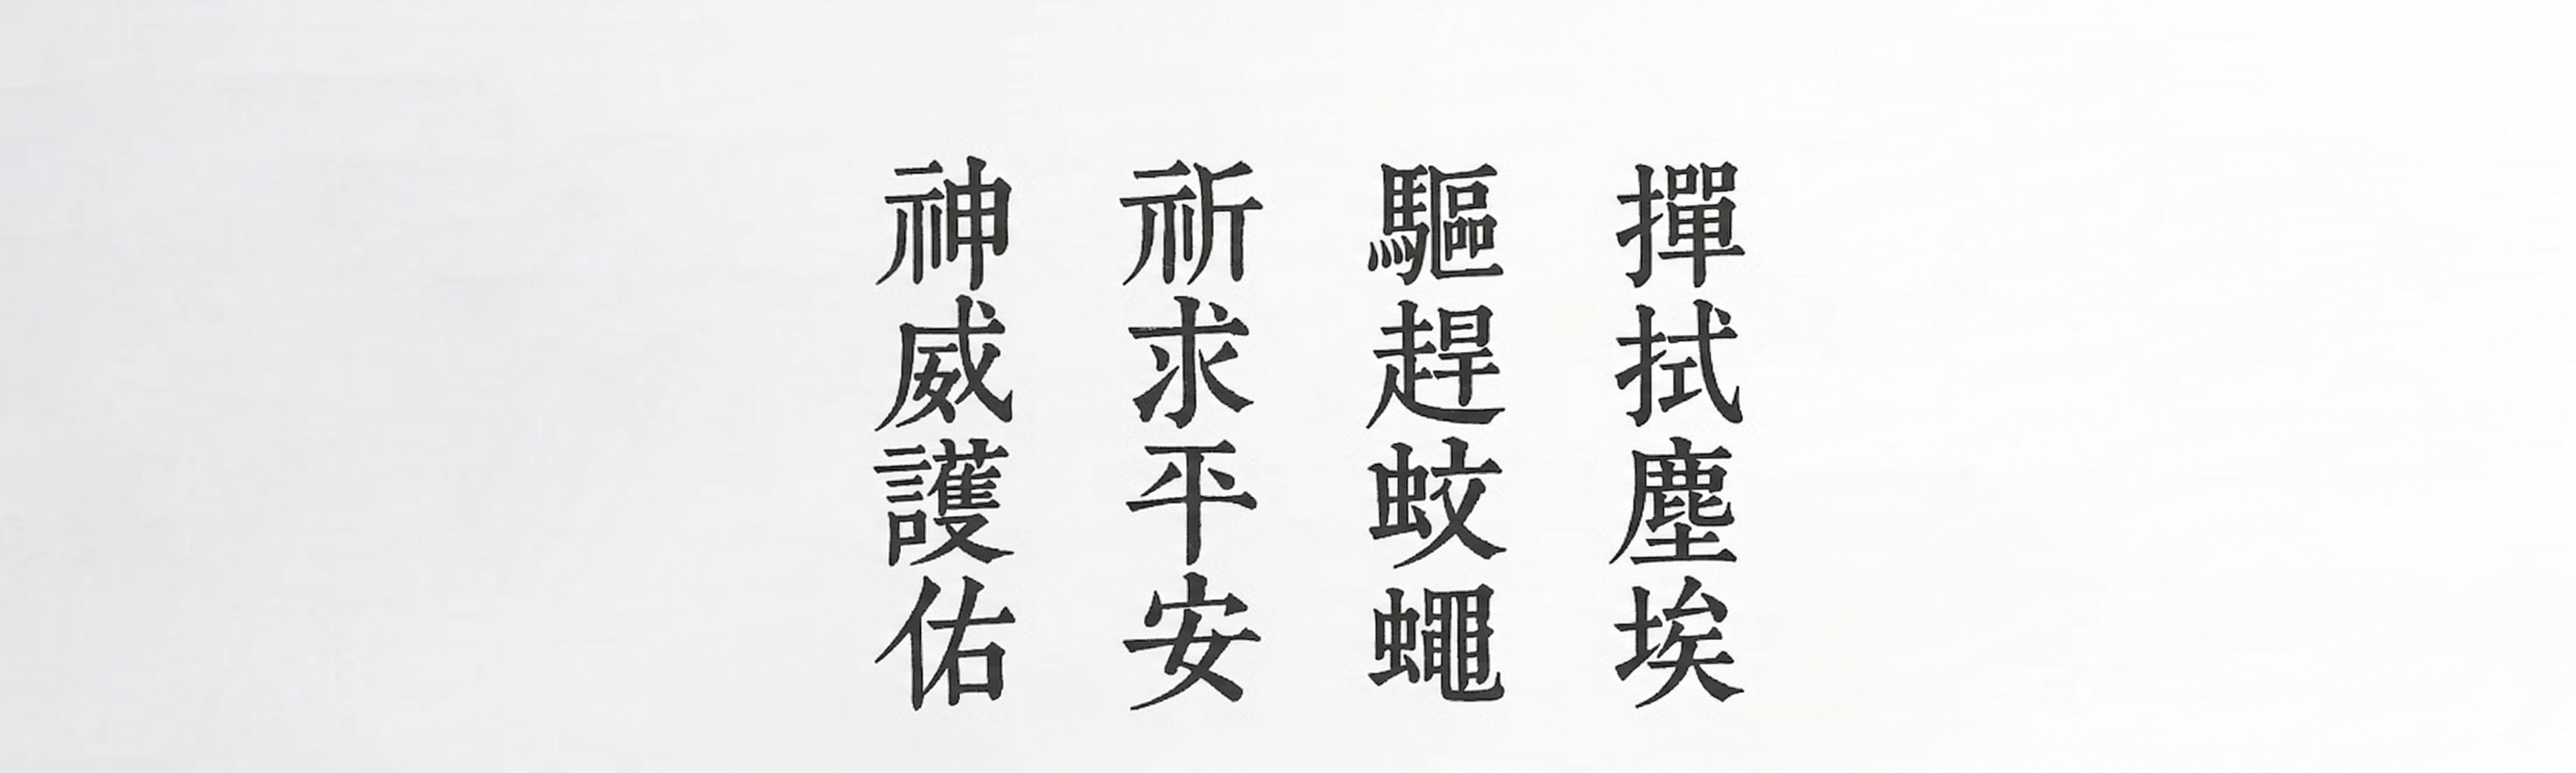 撣拭塵埃
驅趕蚊蠅
祈求平安
神威護佑